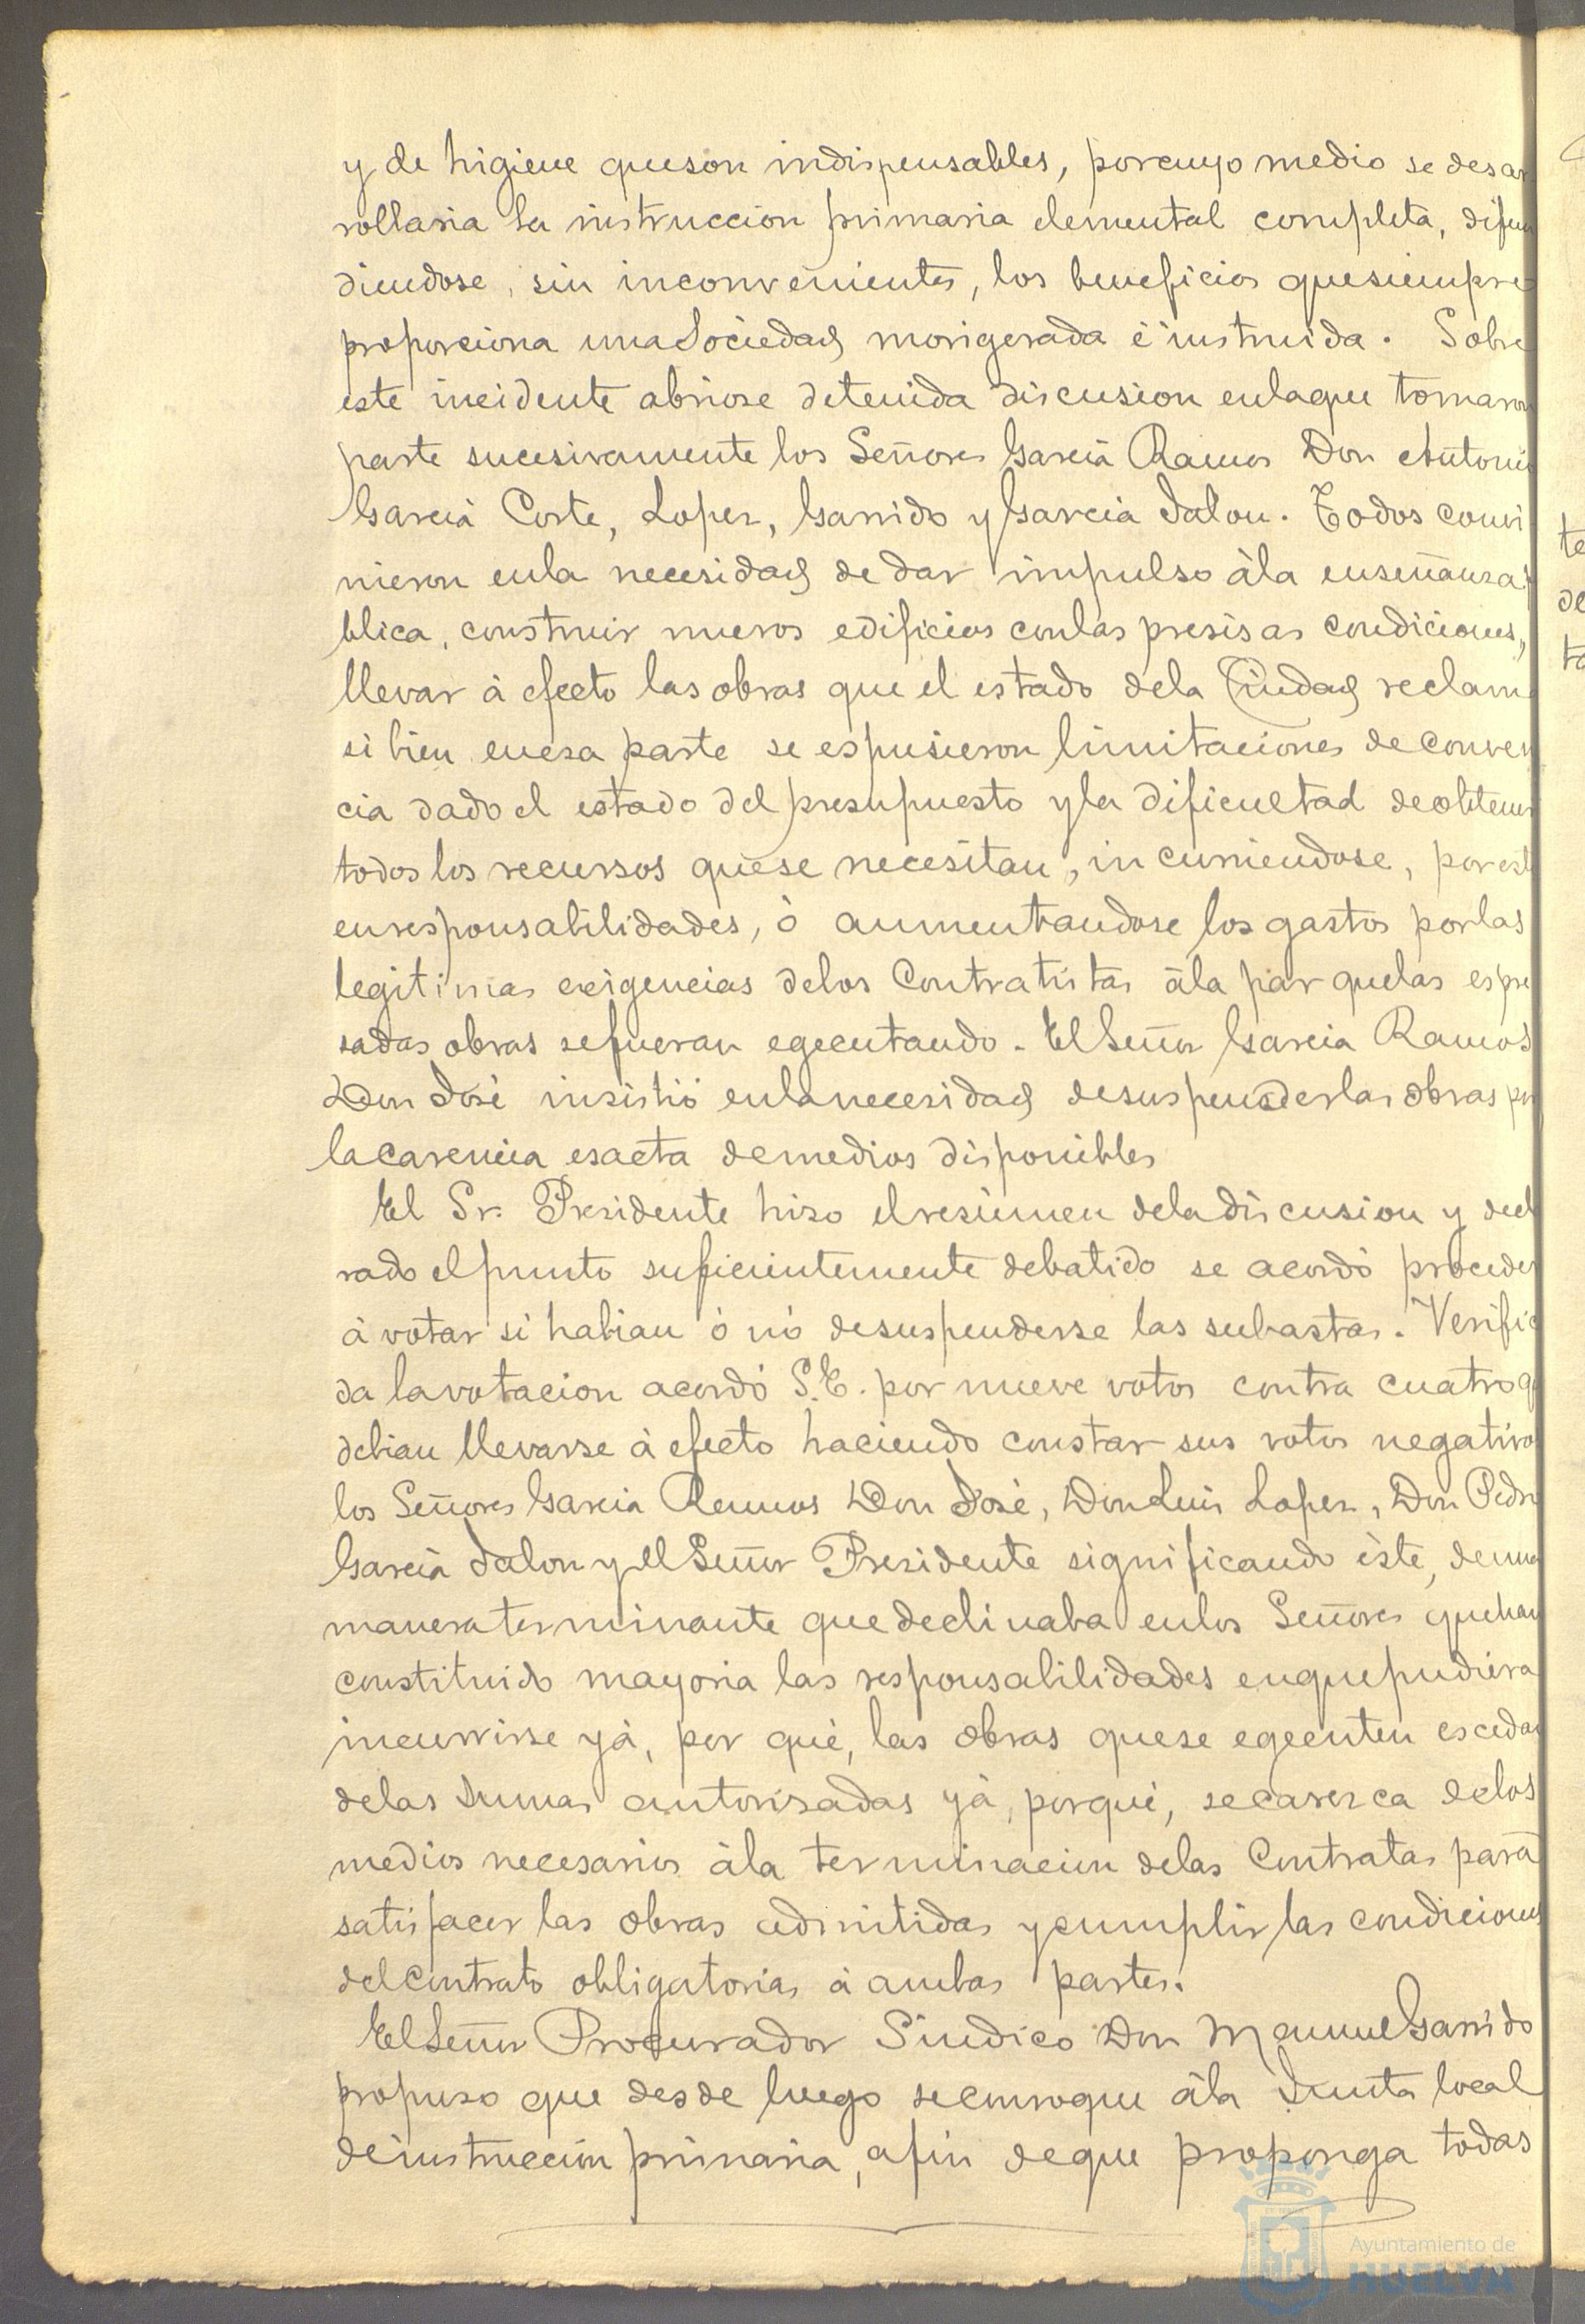 y de higiene que son indispensables, por cuyo medio se desar
rollaria la instruccion primaria elemental completa, difun
diendose, sin inconvenientes, los beneficios que siempre
proporciona una Sociedad morigerada é instruida. Sobre
este incidente abriose detenida discusion en la que tomaron
parte sucesivamente los Señores Garcia Ramos Don Antonio
Garcia Corte, Lopez, Garrido y Garcia Jalon. Todos convi
nieron en la necesidad de dar impulso à la enseñanza pú
blica, construir nuevos edificios con las presisas condiciones,
llevar à efecto las obras que el estado de la Ciudad reclam
si bien en esa parte se espusieron limitaciones de conven
cia dado el estado del presupuesto y la dificultad de obtener
todos los recursos que se necesitan, incurriendose, por est
en responsabilidades, ò aumentandose los gastos por las
legitimas exigencias de los Contratistas à la par que las espre
sadas obras se fueran egecutando. El Señor Garcia Ramos
Don José insistió en la necesidad de suspender las obras por
la carencia esacta de medios disponibles
El Sr. Presidente hizo el resúmen de la discusion y decl
rado el punto suficientemente debatido se acordó proceder
à votar si habian ó nó de suspenderse las subastas. Verific
da la votacion acordó S.E. por nueve votos contra cuatro q
debian llevarse à efecto haciendo constar sus votos negativo
los Señores Garcia Ramos Don José, Don Luis Lopez, Don Pedro
Garcia Jalon y el Señor Presidente significando éste, de una
manera terminante que declinaba en los Señores que han
constituido mayoria las responsabilidades en que pudiera
incurrirse yá, por qué, las obras que se egecuten escedan
de las Sumas autorizadas yá, porqué, se carezca de los
medios necesarios à la terminacion de las Contratas para
satisfacer las obras admitidas y cumplir las condiciones
del Contrato obligatorias à ambas partes.
El Señor Procurador Sindico Don Manuel Garrido
propuso que desde luego se convoque à la Junta local
de instruccion primaria, afin de que proponga todas
te
de
ta
Ayuntamiento de
HUELVA